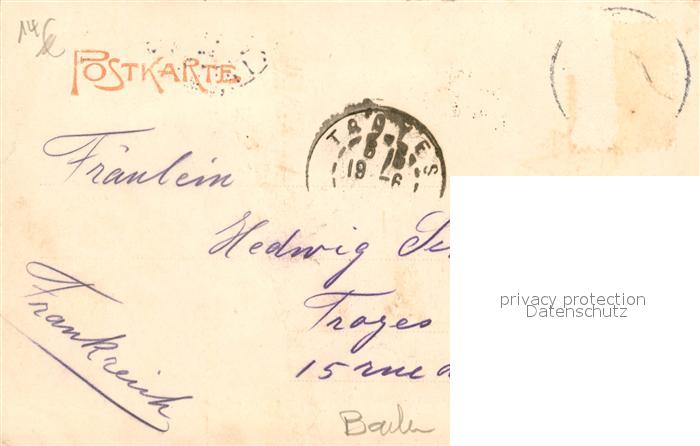 POSTKARTE
TROYES
Fräulein
Hedwig
Troyes
15 rue
Frankreich
Baden
privacy protection
Datenschutz